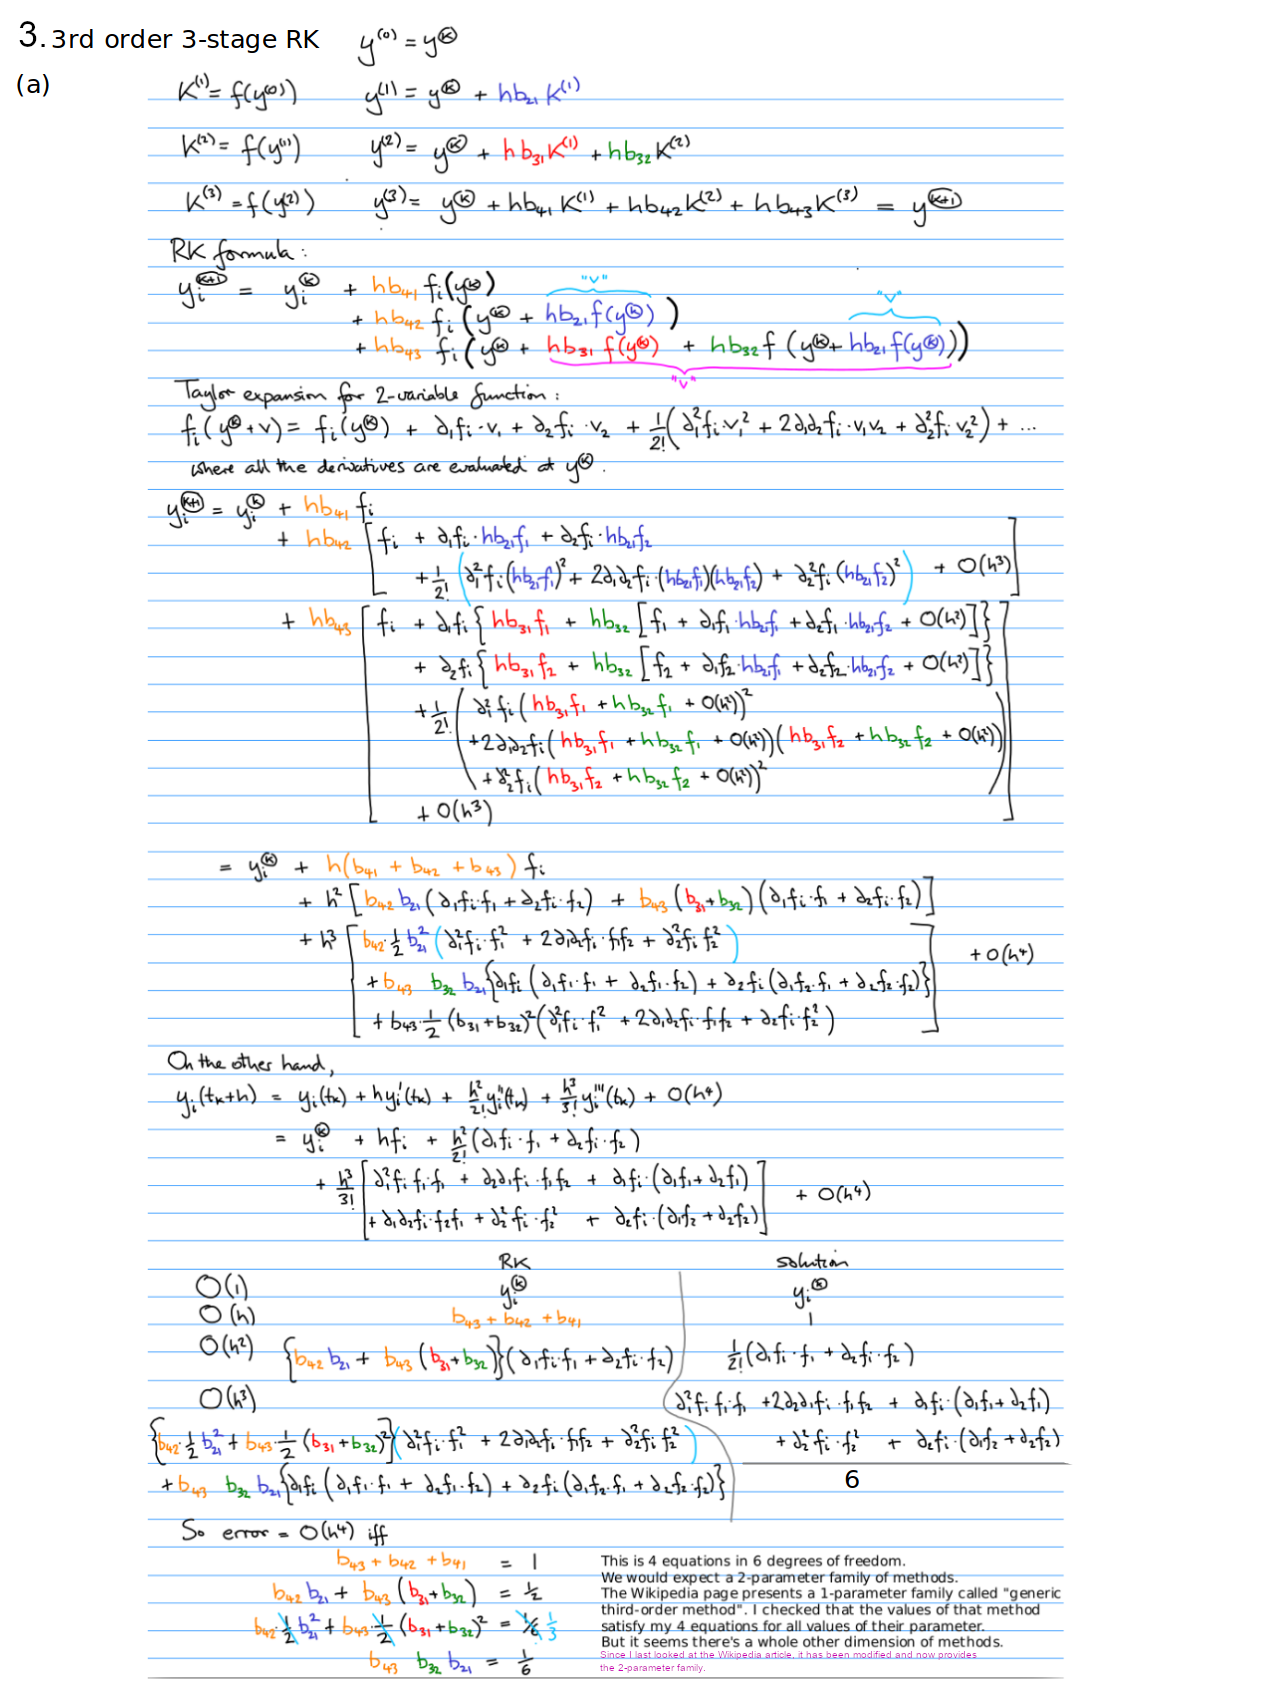 3. 3rd order 3-stage RK y^(0) = y^ⓚ
(a)
K^(1) = f(y^(0)) y^(1) = y^ⓚ + hb₂₁ K^(1)
K^(2) = f(y^(1)) y^(2) = y^ⓚ + hb₃₁K^(1) + hb₃₂K^(2)
K^(3) = f(y^(2)) y^(3) = y^ⓚ + hb₄₁K^(1) + hb₄₂K^(2) + hb₄₃K^(3) = y^(k+1)
RK formula:
yᵢ^(k+1) = yᵢ^ⓚ + hb₄₁ fᵢ(y^ⓚ) "v"
+ hb₄₂ fᵢ(y^ⓚ + hb₂₁f(y^ⓚ)) "v"
+ hb₄₃ fᵢ(y^ⓚ + hb₃₁ f(y^ⓚ) + hb₃₂f (y^ⓚ + hb₂₁f(y^ⓚ)))
"v"
Taylor expansion for 2-variable function:
fᵢ(y^ⓚ+v) = fᵢ(y^ⓚ) + ∂₁fᵢ·v₁ + ∂₂fᵢ·v₂ + 1/2!(∂₁²fᵢ·v₁² + 2∂₁∂₂fᵢ·v₁v₂ + ∂₂²fᵢ·v₂²) + ...
where all the derivatives are evaluated at y^ⓚ.
yᵢ^(k+1) = yᵢ^ⓚ + hb₄₁ fᵢ
+ hb₄₂ [fᵢ + ∂₁fᵢ·hb₂₁f₁ + ∂₂fᵢ·hb₂₁f₂
+ 1/2! (∂₁²fᵢ·(hb₂₁f₁)² + 2∂₁∂₂fᵢ·(hb₂₁f₁)(hb₂₁f₂) + ∂₂²fᵢ·(hb₂₁f₂)²) + O(h³)]
+ hb₄₃ [fᵢ + ∂₁fᵢ{hb₃₁f₁ + hb₃₂[f₁ + ∂₁f₁·hb₂₁f₁ + ∂₂f₁·hb₂₁f₂ + O(h²)]}
+ ∂₂fᵢ{hb₃₁f₂ + hb₃₂[f₂ + ∂₁f₂·hb₂₁f₁ + ∂₂f₂·hb₂₁f₂ + O(h²)]}
+ 1/2! (∂₁²fᵢ(hb₃₁f₁ + hb₃₂f₁ + O(h²))²
+2∂₁∂₂fᵢ(hb₃₁f₁ + hb₃₂f₁ + O(h²))(hb₃₁f₂ + hb₃₂f₂ + O(h²))
+ ∂₂²fᵢ(hb₃₁f₂ + hb₃₂f₂ + O(h²))²)
+ O(h³)]
= yᵢ^ⓚ + h(b₄₁ + b₄₂ + b₄₃) fᵢ
+ h² [b₄₂b₂₁(∂₁fᵢ·f₁ + ∂₂fᵢ·f₂) + b₄₃(b₃₁+b₃₂)(∂₁fᵢ·f₁ + ∂₂fᵢ·f₂)]
+ h³ [b₄₂·1/2 b₂₁² (∂₁²fᵢ·f₁² + 2∂₁∂₂fᵢ·f₁f₂ + ∂₂²fᵢ f₂²) + O(h⁴)
+ b₄₃ b₃₂ b₂₁{∂₁fᵢ(∂₁f₁·f₁ + ∂₂f₁·f₂) + ∂₂fᵢ(∂₁f₂·f₁ + ∂₂f₂·f₂)}
+ b₄₃·1/2 (b₃₁+b₃₂)²(∂₁²fᵢ·f₁² + 2∂₁∂₂fᵢ·f₁f₂ + ∂₂fᵢ·f₂²)]
On the other hand,
yᵢ(tₖ+h) = yᵢ(tₖ) + hyᵢ'(tₖ) + h²/2! yᵢ''(tₖ) + h³/3! yᵢ'''(tₖ) + O(h⁴)
= yᵢ^ⓚ + hfᵢ + h²/2!(∂₁fᵢ·f₁ + ∂₂fᵢ·f₂)
+ h³/3! [∂₁²fᵢ f₁·f₁ + ∂₂∂₁fᵢ·f₁f₂ + ∂₁fᵢ·(∂₁f₁+∂₂f₁)
+ ∂₁∂₂fᵢ·f₂f₁ + ∂₂²fᵢ·f₂² + ∂₂fᵢ·(∂₁f₂+∂₂f₂)] + O(h⁴)
RK solution
O(1) yᵢ^ⓚ yᵢ^ⓚ
O(h) b₄₃ + b₄₂ + b₄₁ 1
O(h²) {b₄₂b₂₁ + b₄₃(b₃₁+b₃₂)}(∂₁fᵢ·f₁ + ∂₂fᵢ·f₂) 1/2!(∂₁fᵢ·f₁ + ∂₂fᵢ·f₂)
O(h³) ∂₁²fᵢ f₁·f₁ + 2∂₂∂₁fᵢ·f₁f₂ + ∂₁fᵢ·(∂₁f₁+∂₂f₁)
{b₄₂·1/2 b₂₁² + b₄₃·1/2 (b₃₁+b₃₂)²}(∂₁²fᵢ·f₁² + 2∂₁∂₂fᵢ·f₁f₂ + ∂₂²fᵢ f₂²) + ∂₂²fᵢ·f₂² + ∂₂fᵢ·(∂₁f₂+∂₂f₂)
+ b₄₃ b₃₂ b₂₁{∂₁fᵢ(∂₁f₁·f₁ + ∂₂f₁·f₂) + ∂₂fᵢ(∂₁f₂·f₁ + ∂₂f₂·f₂)} 6
So error = O(h⁴) iff
b₄₃ + b₄₂ + b₄₁ = 1
b₄₂b₂₁ + b₄₃(b₃₁+b₃₂) = 1/2
b₄₂ 1/2 b₂₁² + b₄₃·1/2 (b₃₁+b₃₂)² = 1/6 1/3
b₄₃ b₃₂ b₂₁ = 1/6
This is 4 equations in 6 degrees of freedom.
We would expect a 2-parameter family of methods.
The Wikipedia page presents a 1-parameter family called "generic
third-order method". I checked that the values of that method
satisfy my 4 equations for all values of their parameter.
But it seems there's a whole other dimension of methods.
Since I last looked at the Wikipedia article, it has been modified and now provides
the 2-parameter family.